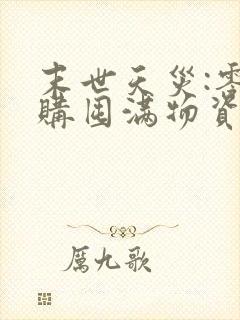 末世天災:零
購囤滿物資
厲九歌